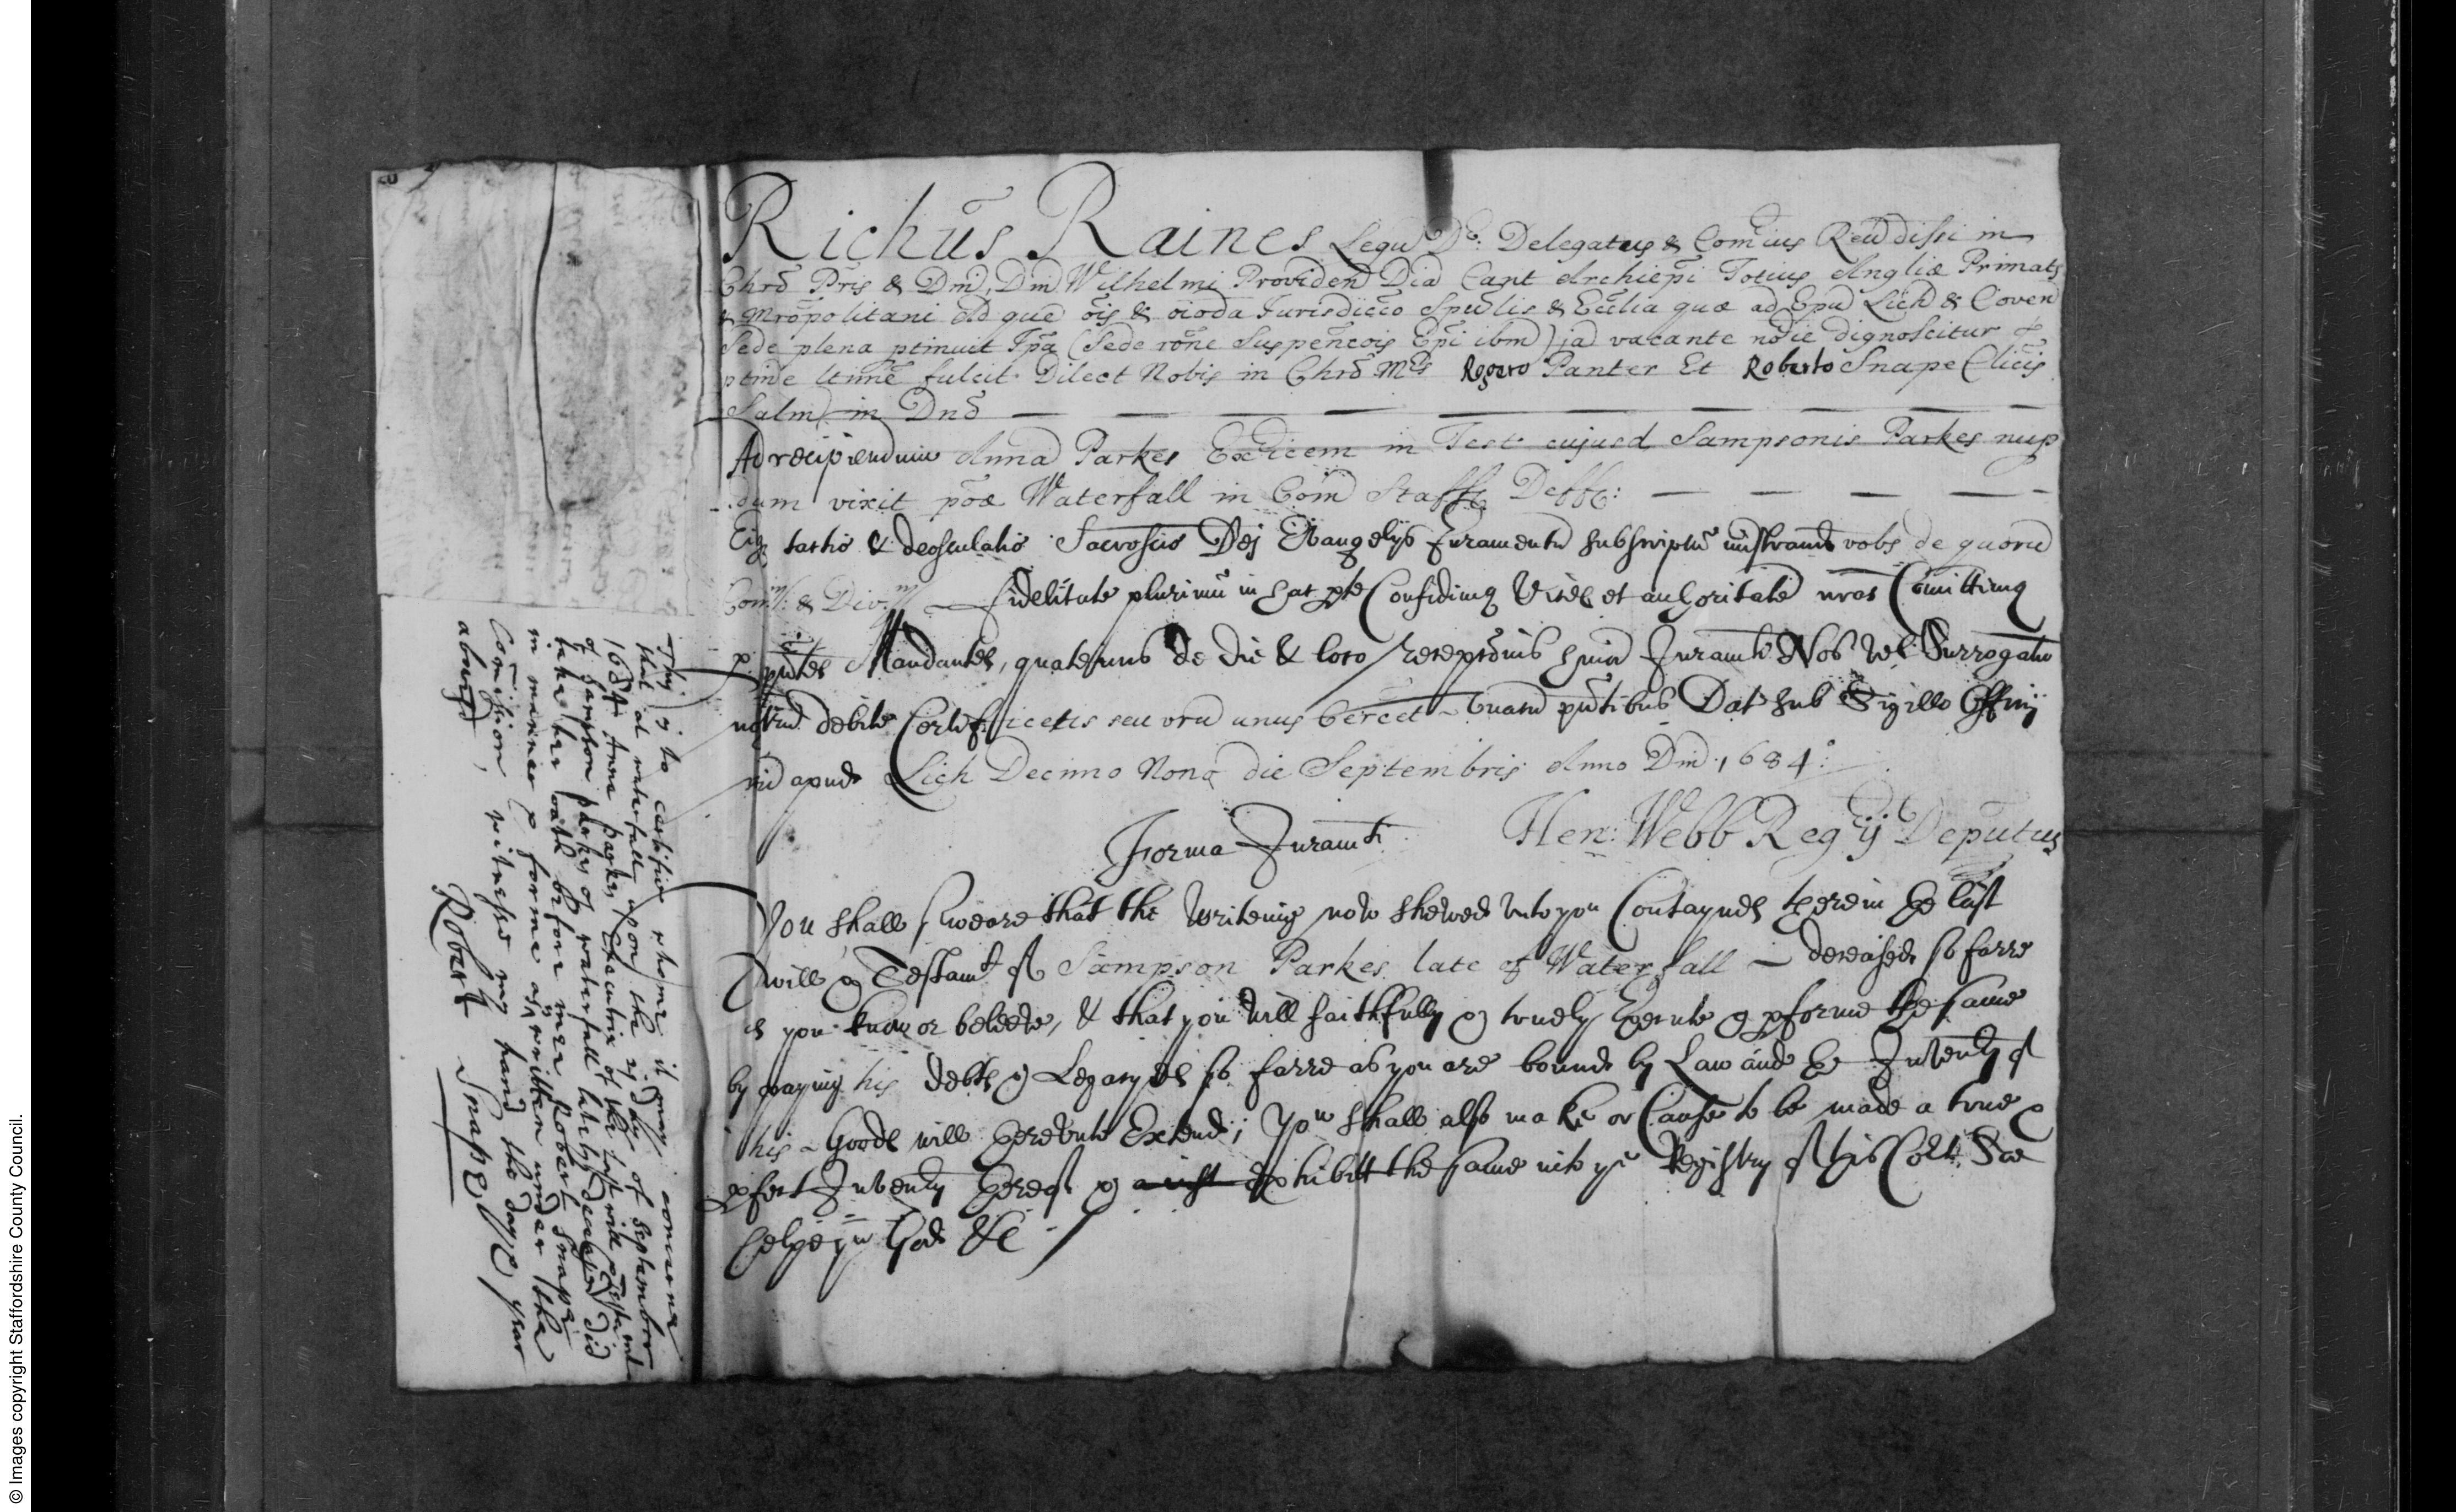 Richūs Raines Legū Dr: Delegatus & Com̄ius Reūdissi in
Chr̄o Pris & Dni, Dni Wilhelmi Providen Dīa Cant Archiep̄i Totius Angliæ Primats
& Mr̄opolitani Ad quē ōis & ōioda Jurisdicc̄o Spūlis & Ecc̄lia quæ ad Ep̄ū Lich & Coven
Sede plena ptinuit Ip̄a (Sede rōne Suspenc̄ois Ep̄i ib̄m) jā vacante nōie dignoscitur &
ptin̄e ltimē fulcit Dilect Nobis in Chr̄o Mris Rogero Panter Et Roberto Snape Clīcis
Salm̄ in Dn̄o
Ad recipiendum Annā Parkes Ex̄ricem in Test cujusd Sampsonis Parkes nup
dum vixit pōæ Waterfall in Com̄ Staff Deff:
Eisq tactis & deosculatis Sacros̄cis Dei Evangelijs Juramentū subscriptū m̄istrand vobs de quorū
Com̄: & Div: fidelitate plurimū in hac pte Confidimq Vices et authoritatē nr̄as Com̄ittimq
p p̄ntes Mandantes, quatenus de die & loco recepc̄onis h̄mōi Juramti Nos vel Surrogatū
nr̄um debite Certificetis seu vr̄ū unus Certet unacū p̄ntibus Dat sub Sigillo Officij
nr̄i apud Lich Decimo Nono die Septembris Anno Dni 1684:
Hen: Webb Regrij Deputus
Forma Juramti
You shall sweare that the writeinge now shewed unto you Contaynes therein the last
will & Testamt of Sampson Parkes late of Waterfall deceased so farre
as you know or beleeve, & that you will faithfully & truely Execute & pforme the same
by paying his debts & Legacyes so farre as you are bound by Law and the Inventy of
his Goods will thereunto Extend; You shall also make or Cause to be made a true &
pfect Inventy thereof & exhibitt the same into ye Registry of this Cort Soe
helpe you God &c
This is to certifie whome it may concerne
that at waterfall upon the 25 day of September
1684 Anne parkes Executrix of the last will & testamt
of Sampson parkes of waterfall lately deceased did
take her oath before mee Robert Snape
in manner & forme as written under the
Com̄ision, witnesse my hand the day & year
abovesd
Robert Snape